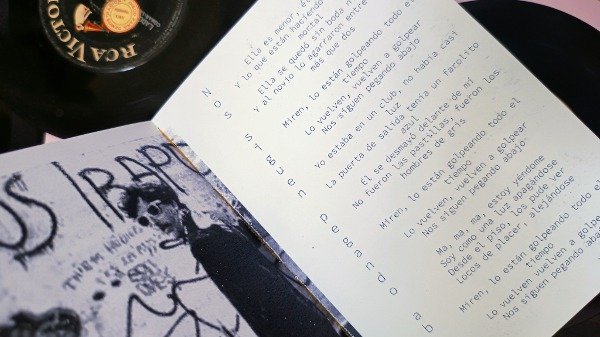 RCA VICTOR
US IRAPU
Nos siguen pegando ab
Ella es menor, é
y lo que están haciendo
mortal
Ella se quedó sin bodas n
Y al novio lo agarraron entre
más que dos
Miren, lo están golpeando todo el
tiempo
Lo vuelven, vuelven a golpear
Nos siguen pegando abajo
Yo estaba en un club, no había casi
luz
La puerta de salida tenía un farolito
azul
Él se desmayó delante de mí
No fueron las pastillas, fueron los
hombres de gris
Miren, lo están golpeando todo el
tiempo
Lo vuelven, vuelven a golpear
Nos siguen pegando abajo
Ma, ma, ma, estoy viéndome
Soy como una luz apagándose
Desde el piso, los pude ver
Locos de placer, alejándose
Miren, lo están golpeando todo el
tiempo
Lo vuelven vuelven a golpea
Nos siguen pegando abajo